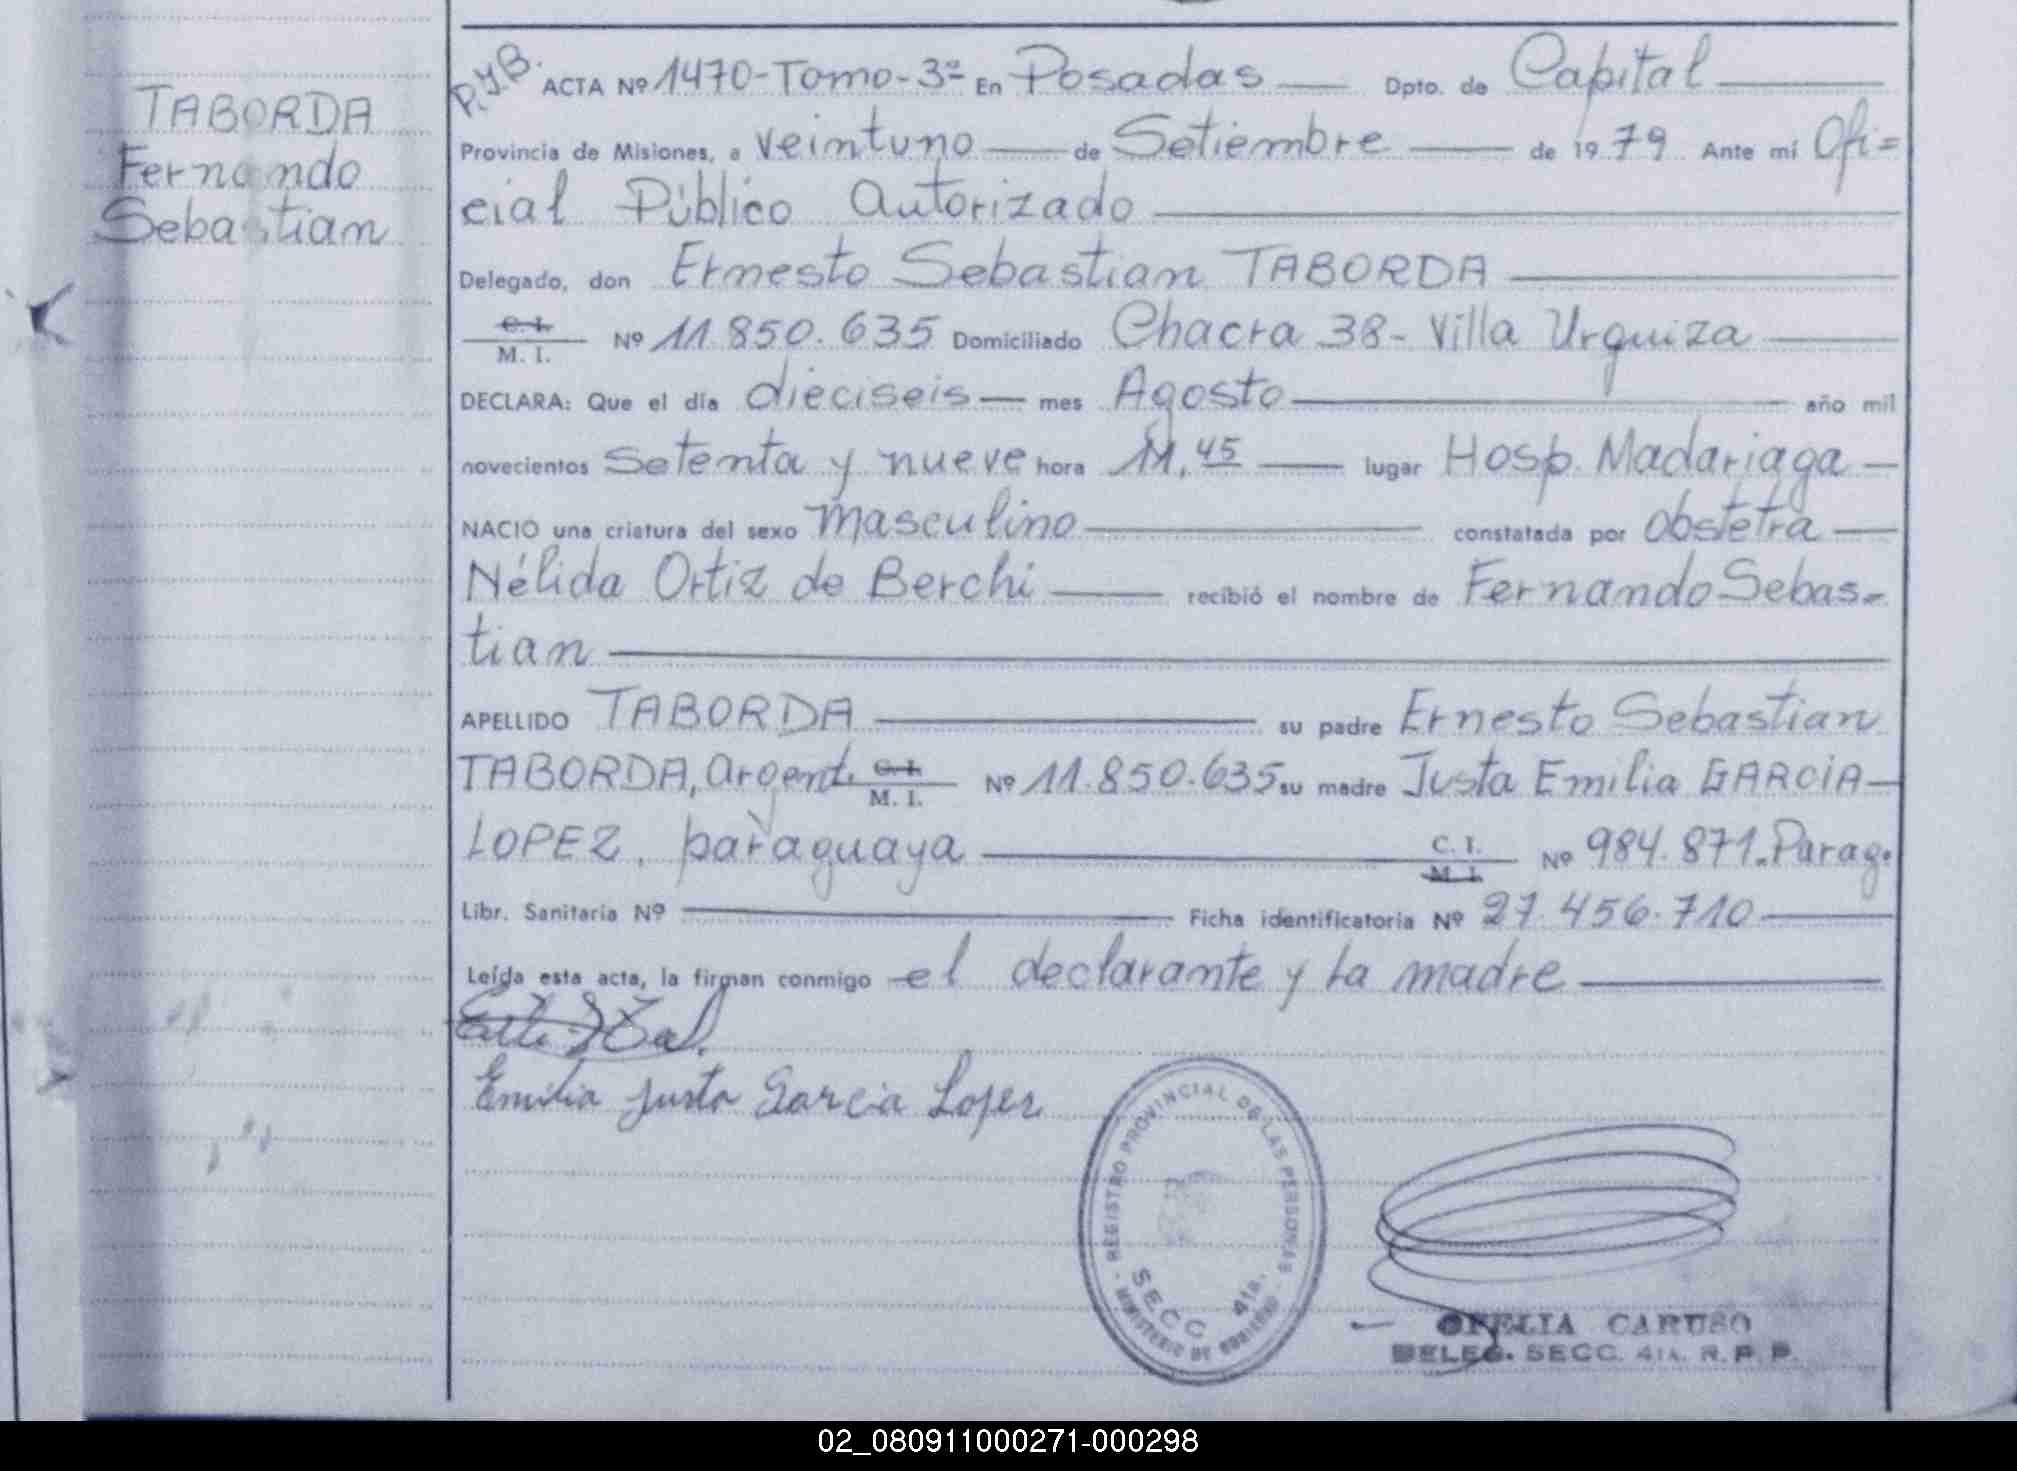 TABORDA
Fernando
Sebastian
P.y.B. ACTA Nº 1470-Tomo-3º En Posadas Dpto. de Capital
Provincia de Misiones, a veintuno de Setiembre de 1979 Ante mí Ofi=
cial Público Autorizado
Delegado, don Ernesto Sebastian TABORDA
C. I.
M. I. Nº 11.850.635 Domiciliado Chacra 38- Villa Urquiza
DECLARA: Que el día dieciseis mes Agosto año mil
novecientos Setenta y nueve hora 11,45 lugar Hosp. Madariaga
NACIO una criatura del sexo Masculino constatada por Obstetra
Nélida Ortiz de Berchi recibió el nombre de Fernando Sebas=
tian
APELLIDO TABORDA su padre Ernesto Sebastian
TABORDA, argent. C. I.
M. I. Nº 11.850.635 su madre Justa Emilia GARCIA
LOPEZ, paraguaya C. I.
M. I. Nº 984.871. Parag.
Libr. Sanitaria Nº Ficha identificatoria Nº 27.456.710
Leída esta acta, la firman conmigo el declarante y la madre
Emilia Justa Garcia Lopez
REGISTRO PROVINCIAL DE LAS PERSONAS
SECC 4ta.
MINISTERIO DE GOBIERNO
OFELIA CARUSO
DELEG. SECC. 4ta. R. P. P.
02_080911000271-000298